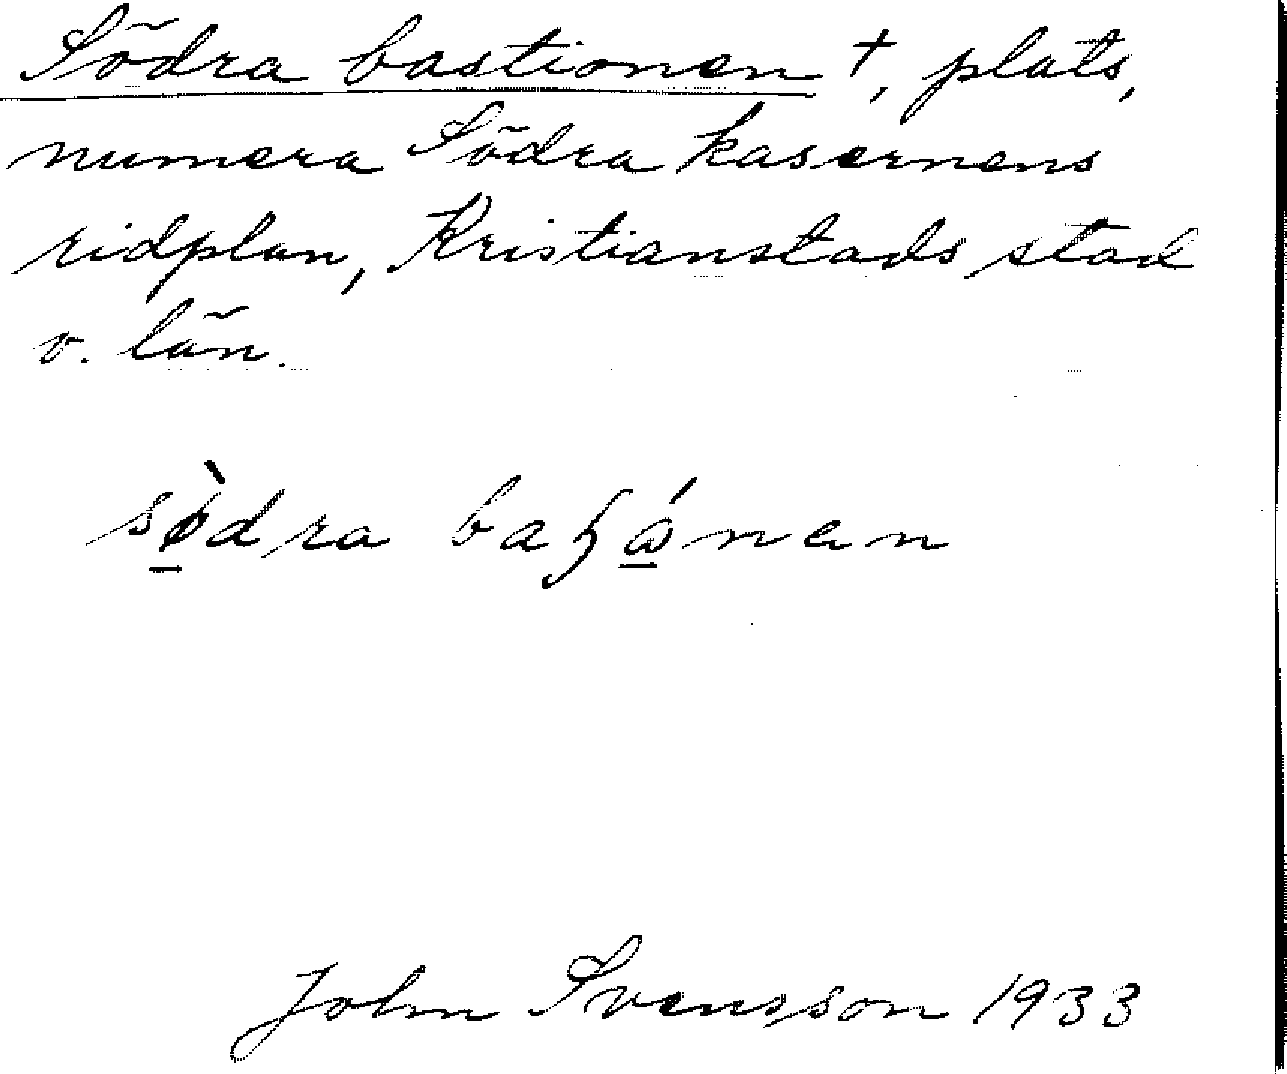 Södra bastionen †, plats,
numera Södra kasernens
ridplan, Kristianstads stad
o. län.
södra
John Svensson 1933